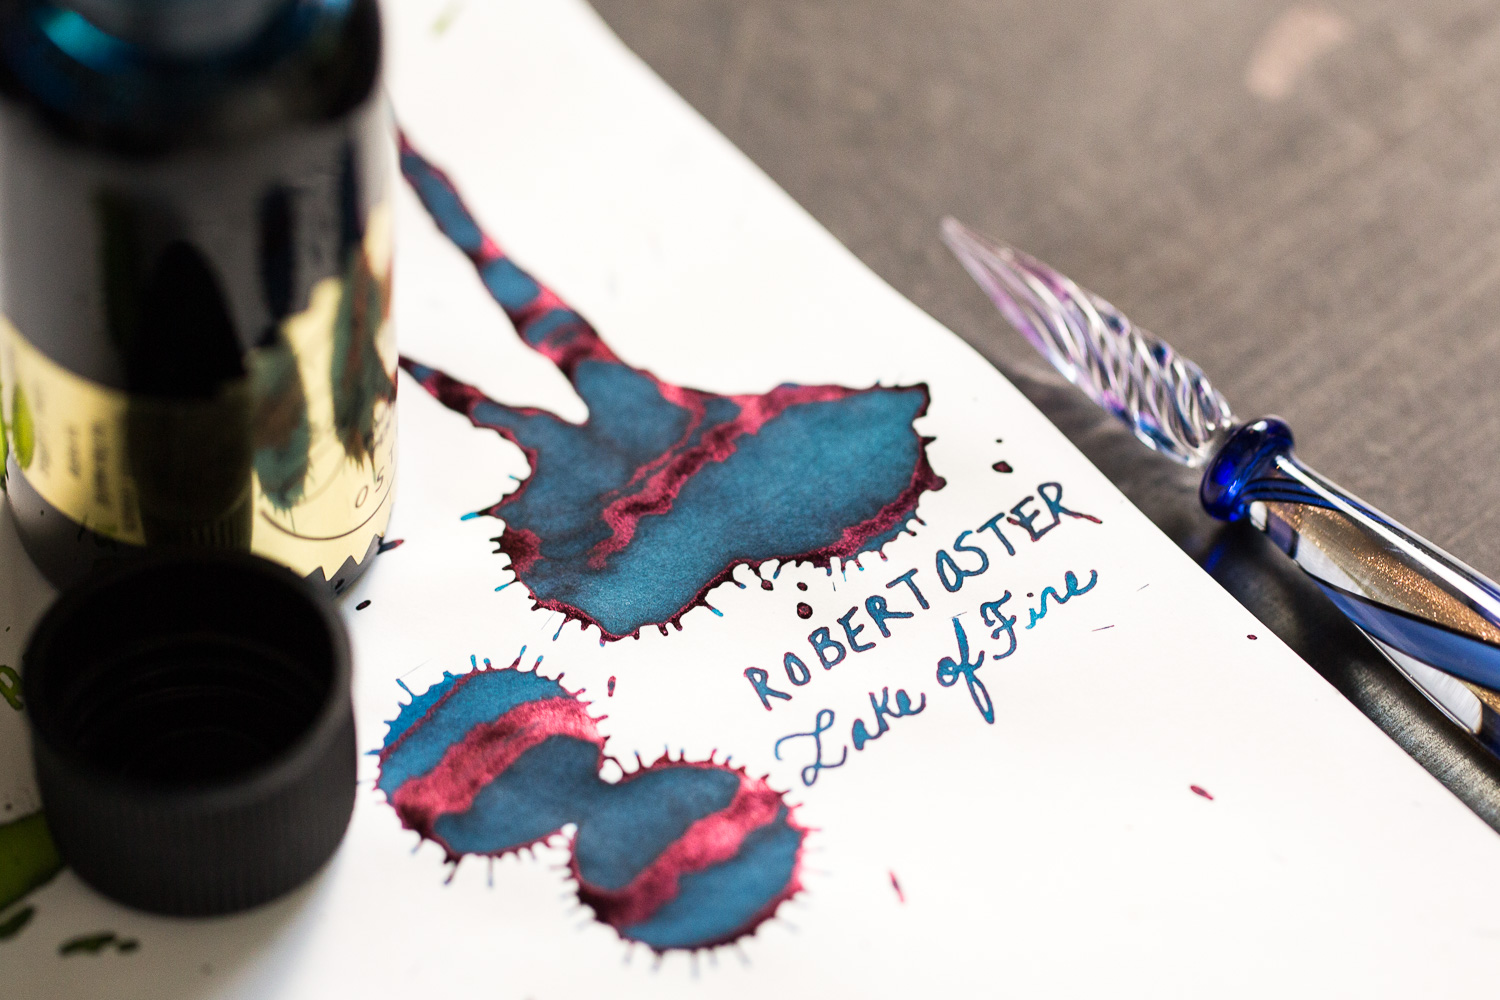 ROBERT OSTER
Lake of Fire